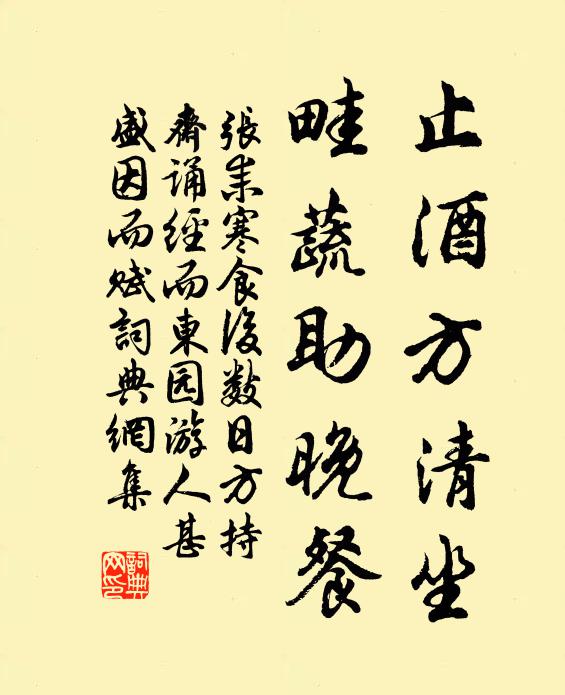 止酒方清坐
畦蔬助晚餐
张耒寒食後数日方持
齋诵經而東园游人甚
盛因而赋詞典網集
詞典网印